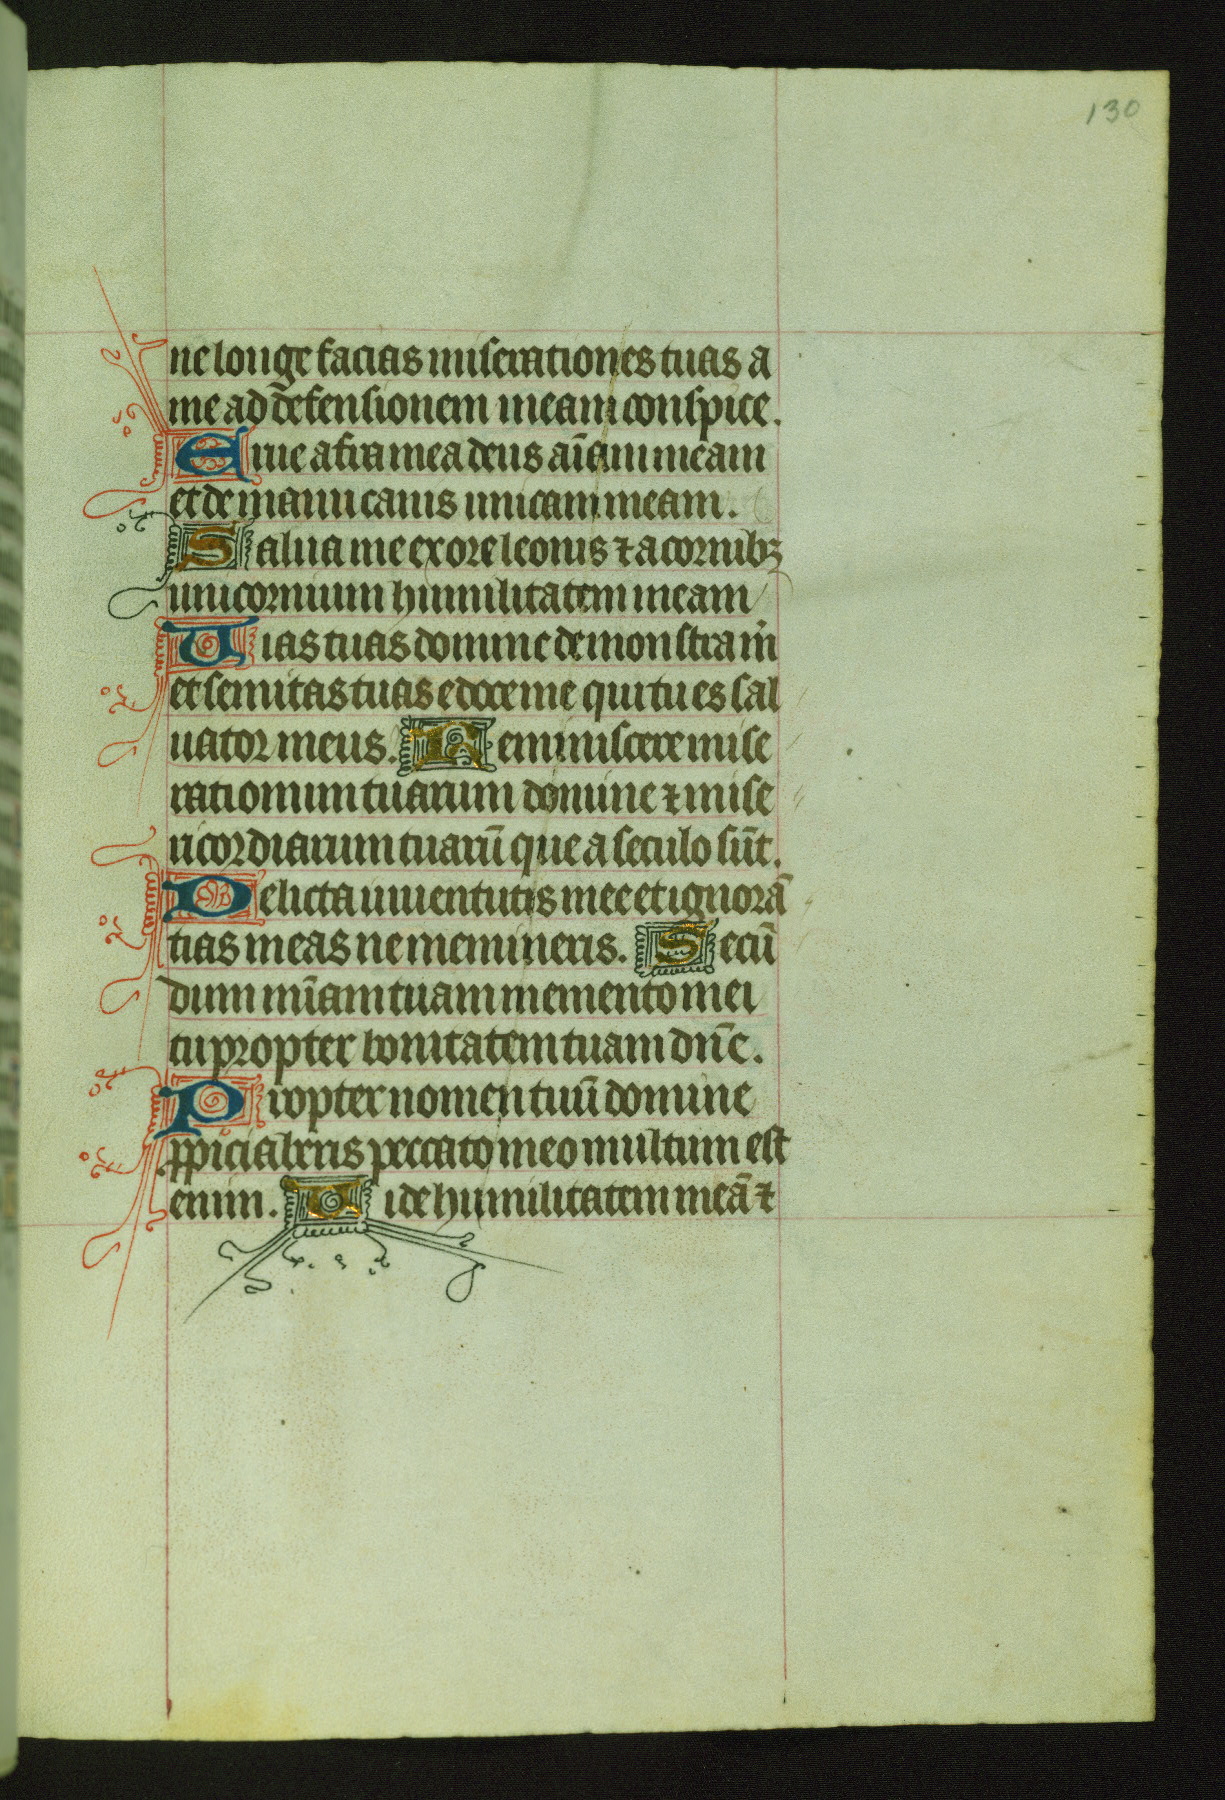 130
ne longe facias miserationes tuas a
me ad defensionem meam conspice.
Erue a framea deus aīam meam
et de manu canis unicam meam.
Salua me ex ore leonis ⁊ a cornibꝫ
unicornium humilitatem meam
Uias tuas domine demonstra m̄
et semitas tuas edoce me qui tu es sal
uator meus. Reminiscere mise
rationum tuarum domine ⁊ mise
ricordiarum tuarū que a seculo sūt.
Delicta iuuentutis mee et ignorā
tias meas ne memineris. Secū
dum mīam tuam memento mei
tu propter bonitatem tuam dn̄e.
Propter nomen tuū domine
ꝓpiciaberis peccato meo multum est
enim. Uide humilitatem meā ⁊